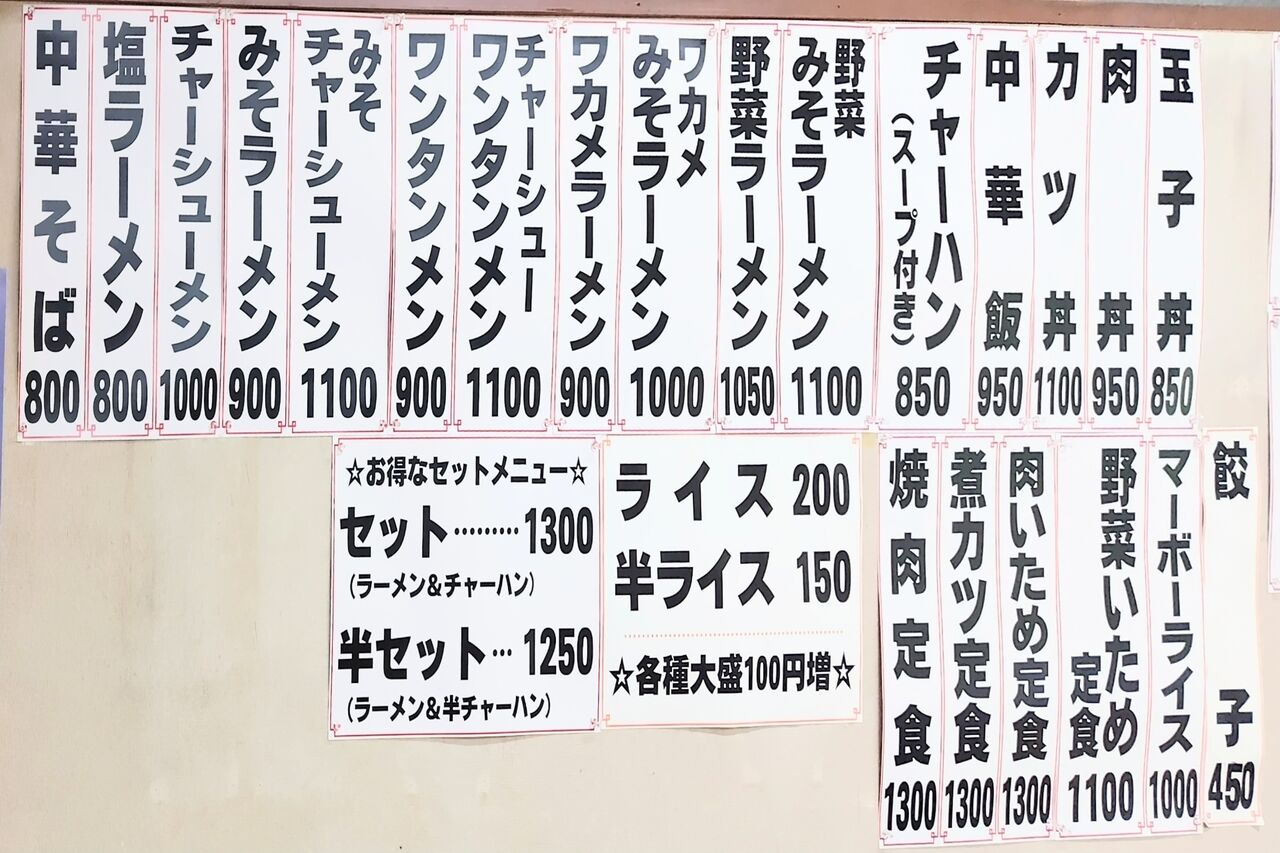 中華そば 800
塩ラーメン 800
チャーシューメン 1000
みそラーメン 900
みそ
チャーシューメン 1100
ワンタンメン 900
チャーシュー
ワンタンメン 1100
ワカメラーメン 900
ワカメ
みそラーメン 1000
野菜ラーメン 1050
野菜
みそラーメン 1100
チャーハン
(スープ付き)
850
中華飯 950
カツ丼 1100
肉丼 950
玉子丼 850
☆お得なセットメニュー☆
セット………1300
(ラーメン&チャーハン)
半セット…1250
(ラーメン&半チャーハン)
ライス 200
半ライス 150
☆各種大盛100円増☆
焼肉定食 1300
煮カツ定食 1300
肉いため定食 1300
野菜いため
定食
1100
マーボーライス 1000
餃子 450